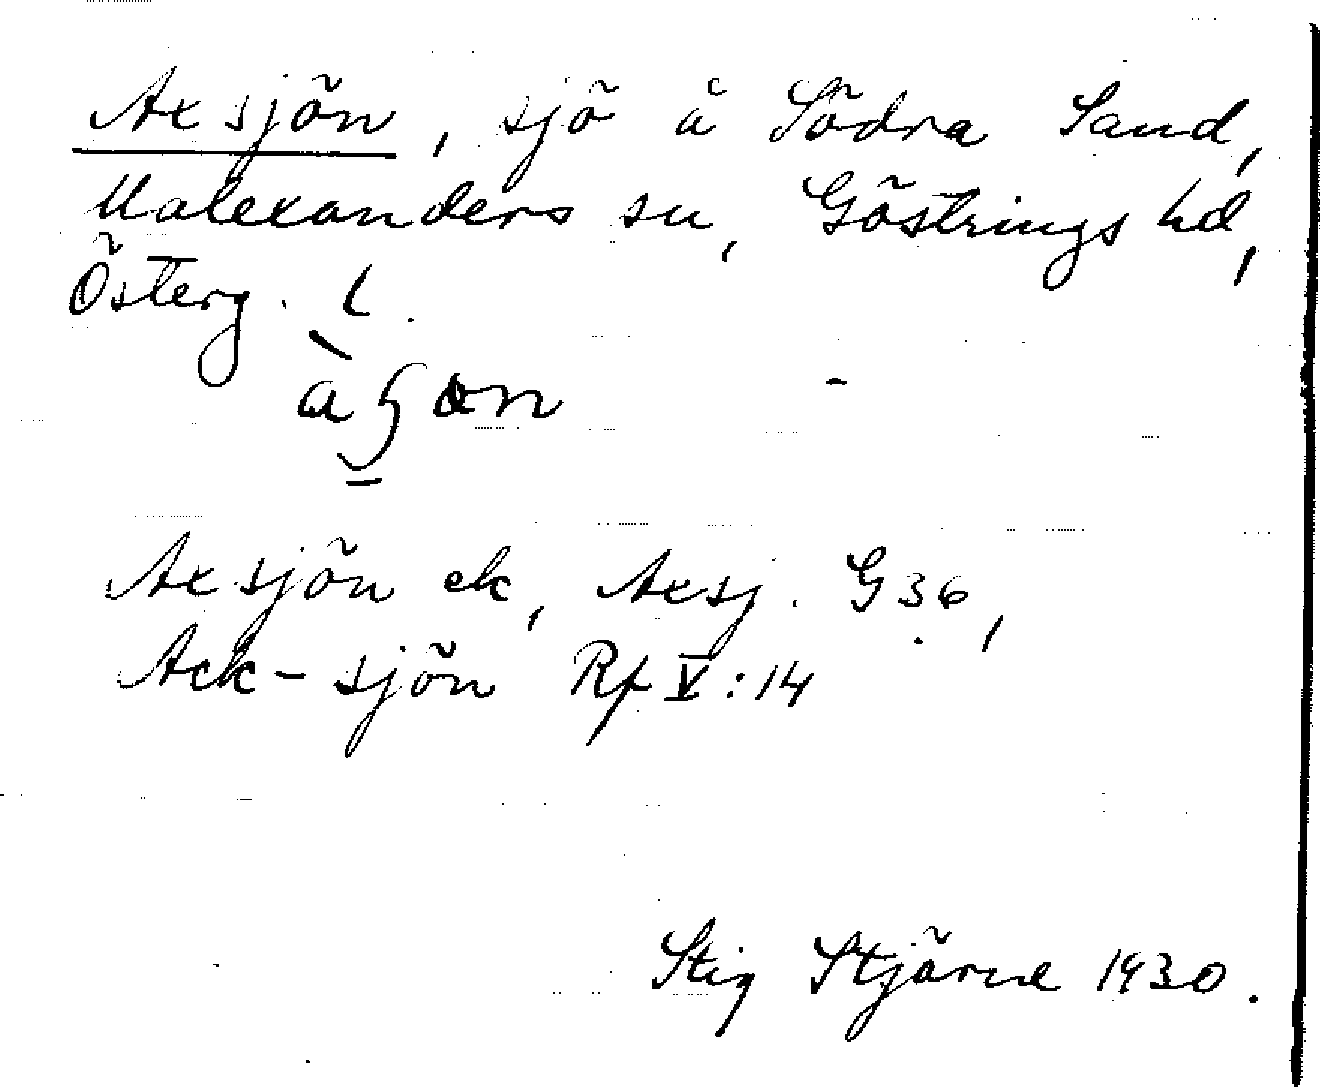 Axsjön, sjö å Södra Sand,
Malexanders sn, Göstrings hd,
Österg. L.
Axsjön ek, Axsj. G36,
Ack-sjön Rf V:14
Stig Stjärne 1930.